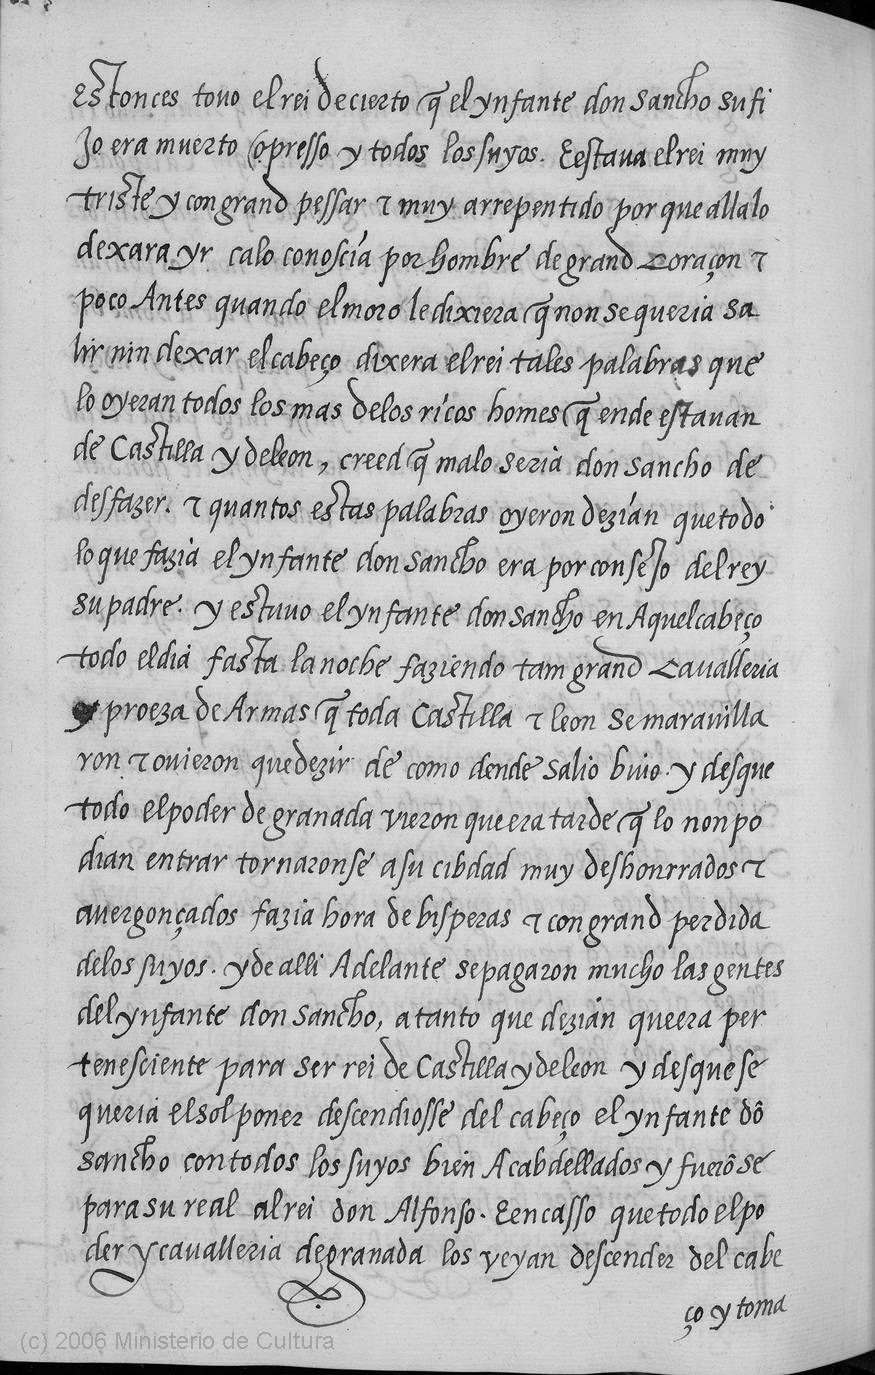 Estonces tovo el rei de cierto q̃ el ynfante don Sancho su fi
Jo era muerto o presso y todos los suyos. E estava el rei muy
triste y con grand pessar τ muy arrepentido por que alla lo
dexara yr ca lo conoscía por hombre de grand coraçon τ
poco Antes quando el moro le dixiera q̃ non se queria sa
lir nin dexar el cabeço dixera el rei tales palabras que
lo oyeran todos los mas de los ricos homes q̃ ende estavan
de Castilla y de leon, creed q̃ malo seria don sancho de
desfazer. τ quantos estas palabras oyeron dezían que todo
lo que fazia el ynfante don Sancho era por conseJo del rey
su padre. y estuuo el ynfante don Sancho en Aquel cabeço
todo el dia fasta la noche faziendo tam grand cavalleria
y proeza de Armas q̃ toda Castilla τ leon se maravilla
ron τ ovieron que dezir de como dende salio bivo. y desque
todo el poder de granada vieron que era tarde q̃ lo non po
dian entrar tornaronse a su cibdad muy deshonrrados τ
avergonçados fazia hora de bisperas τ con grand perdida
de los suyos. y de alli Adelante se pagaron mucho las gentes
del ynfante don Sancho, a tanto que dezián que era per
tenesciente para ser rei de Castilla y de leon y desque se
queria el sol poner descendiosse del cabeço el ynfante dõ
sancho con todos los suyos bien Acabdellados y fuerõ se
para su real al rei don Alfonso. E en casso que todo el po
der y cavalleria de granada los veyan descender del cabe
ço y toma
(c) 2006 Ministerio de Cultura